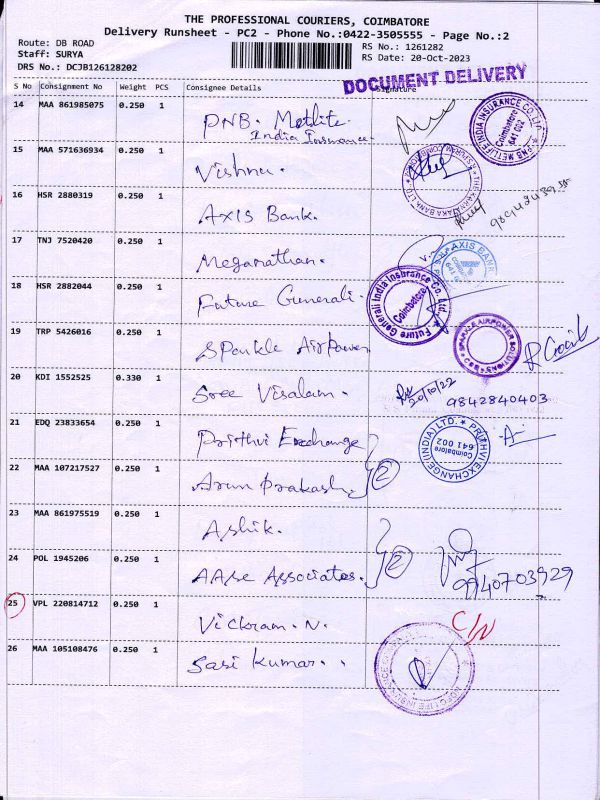 THE PROFESSIONAL COURIERS, COIMBATORE
Delivery Runsheet - PC2 - Phone No.:0422-3505555 - Page No.:2
Route: DB ROAD
Staff: SURYA
DRS No.: DCJB126128202
RS No.: 1261282
RS Date: 20-Oct-2023
DOCUMENT DELIVERY
S No Consignment No Weight PCS Consignee Details Signature
14 MAA 861985075 0.250 1 PNB. Metlife
India Insurance.
PNB METLIFE INDIA INSURANCE CO. LTD.
Coimbatore
641 002
15 MAA 571636934 0.250 1 Vishnu.
THE KARNATAKA BANK LTD.
16 HSR 2880319 0.250 1 AXIS Bank.
17 TNJ 7520420 0.250 1 Meganathan.
AXIS BANK
18 HSR 2882044 0.250 1 Future Generali.
Future Generali India Insurance Co. Ltd.
Coimbatore
19 TRP 5426016 0.250 1 Sparkle Airpower
20 KDI 1552525 0.330 1 Sree Visalam.
20/10/22
9842840403
21 EDQ 23833654 0.250 1 Prithvi Exchange
PRITHVI EXCHANGE (INDIA) LTD.
Coimbatore
641 002
22 MAA 107217527 0.250 1 Arun Prakash
2
23 MAA 861975519 0.250 1 Ashik.
24 POL 1945206 0.250 1 Associates.
2
9940703929
25 VPL 220814712 0.250 1 Vickram. N.
C/N
26 MAA 105108476 0.250 1 Sasi Kumar. .